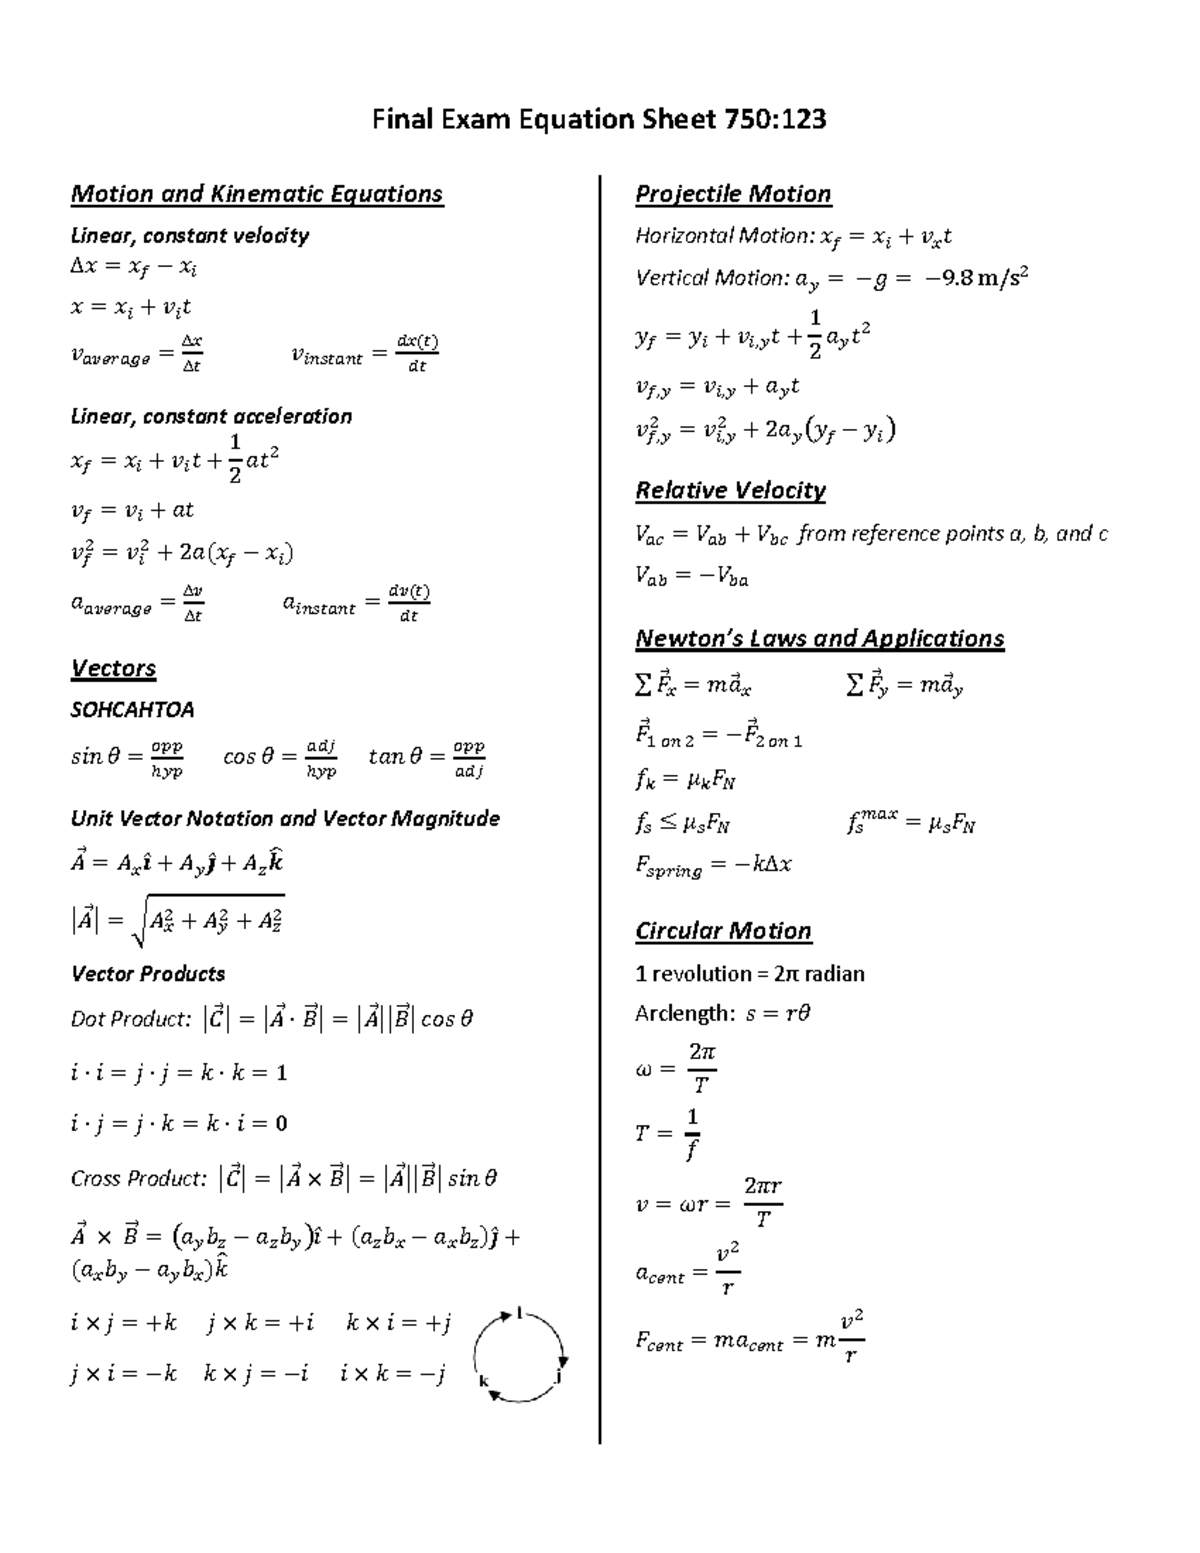 Final Exam Equation Sheet 750:123
Motion and Kinematic Equations
Linear, constant velocity
Δx = x_f − x_i
x = x_i + v_i t
v_average = Δx/Δt    v_instant = dx(t)/dt
Linear, constant acceleration
x_f = x_i + v_i t + 1/2 at²
v_f = v_i + at
v_f² = v_i² + 2a(x_f − x_i)
a_average = Δv/Δt    a_instant = dv(t)/dt
Vectors
SOHCAHTOA
sin θ = opp/hyp    cos θ = adj/hyp    tan θ = opp/adj
Unit Vector Notation and Vector Magnitude
A⃗ = A_x î + A_y ĵ + A_z k̂
|A⃗| = √(A_x² + A_y² + A_z²)
Vector Products
Dot Product: |C⃗| = |A⃗ · B⃗| = |A⃗||B⃗| cos θ
i · i = j · j = k · k = 1
i · j = j · k = k · i = 0
Cross Product: |C⃗| = |A⃗ × B⃗| = |A⃗||B⃗| sin θ
A⃗ × B⃗ = (a_y b_z − a_z b_y)î + (a_z b_x − a_x b_z)ĵ +
(a_x b_y − a_y b_x)k̂
i × j = +k    j × k = +i    k × i = +j
j × i = −k    k × j = −i    i × k = −j
i
k    j
Projectile Motion
Horizontal Motion: x_f = x_i + v_x t
Vertical Motion: a_y = −g = −9.8 m/s²
y_f = y_i + v_i,y t + 1/2 a_y t²
v_f,y = v_i,y + a_y t
v_f,y² = v_i,y² + 2a_y(y_f − y_i)
Relative Velocity
V_ac = V_ab + V_bc from reference points a, b, and c
V_ab = −V_ba
Newton’s Laws and Applications
∑ F⃗_x = ma⃗_x    ∑ F⃗_y = ma⃗_y
F⃗_1 on 2 = −F⃗_2 on 1
f_k = μ_k F_N
f_s ≤ μ_s F_N    f_s^max = μ_s F_N
F_spring = −kΔx
Circular Motion
1 revolution = 2π radian
Arclength: s = rθ
ω = 2π/T
T = 1/f
v = ωr = 2πr/T
a_cent = v²/r
F_cent = ma_cent = m v²/r